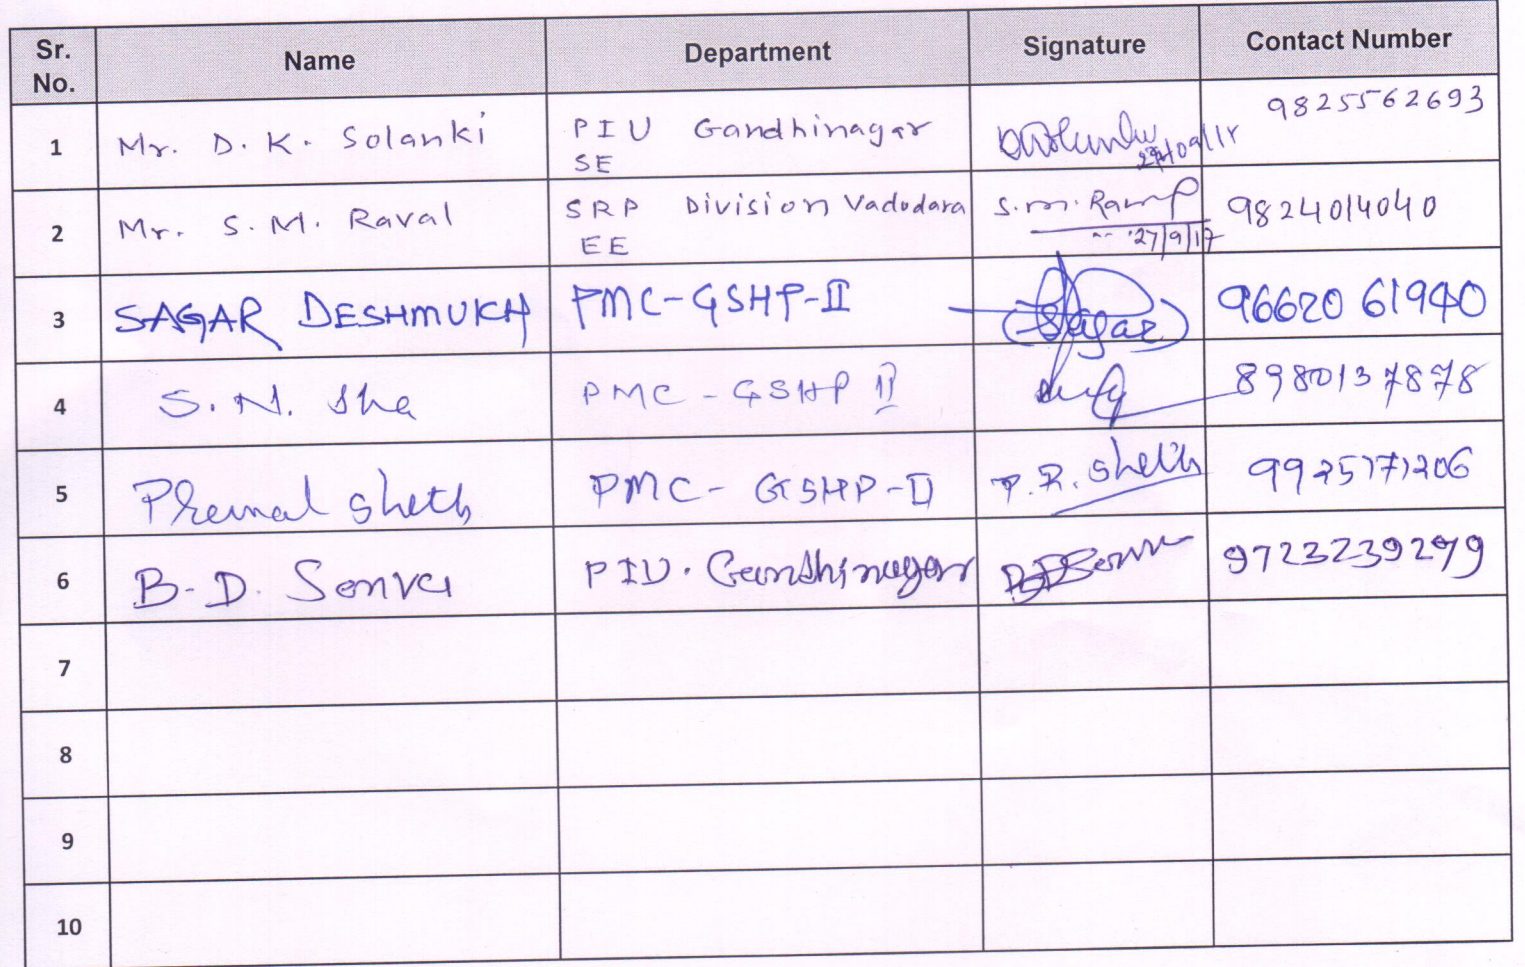 Sr. No. Name Department Signature Contact Number
1 Mr. D. K. Solanki PIU Gandhinagar 9825562693
SE
2 Mr. S. M. Raval SRP Division Vadodara S. M. Raval 9824014040
EE 27/9/17
3 SAGAR DESHMUKH PMC-GSHP-II Sagar 96620 61940
4 S. N. Sha PMC - GSHP II 8980137878
5 Premal Sheth PMC - GSHP-II P. R. Sheth 9925171206
6 B. D. Sonva PIU. Gandhinagar 9723239299
7
8
9
10